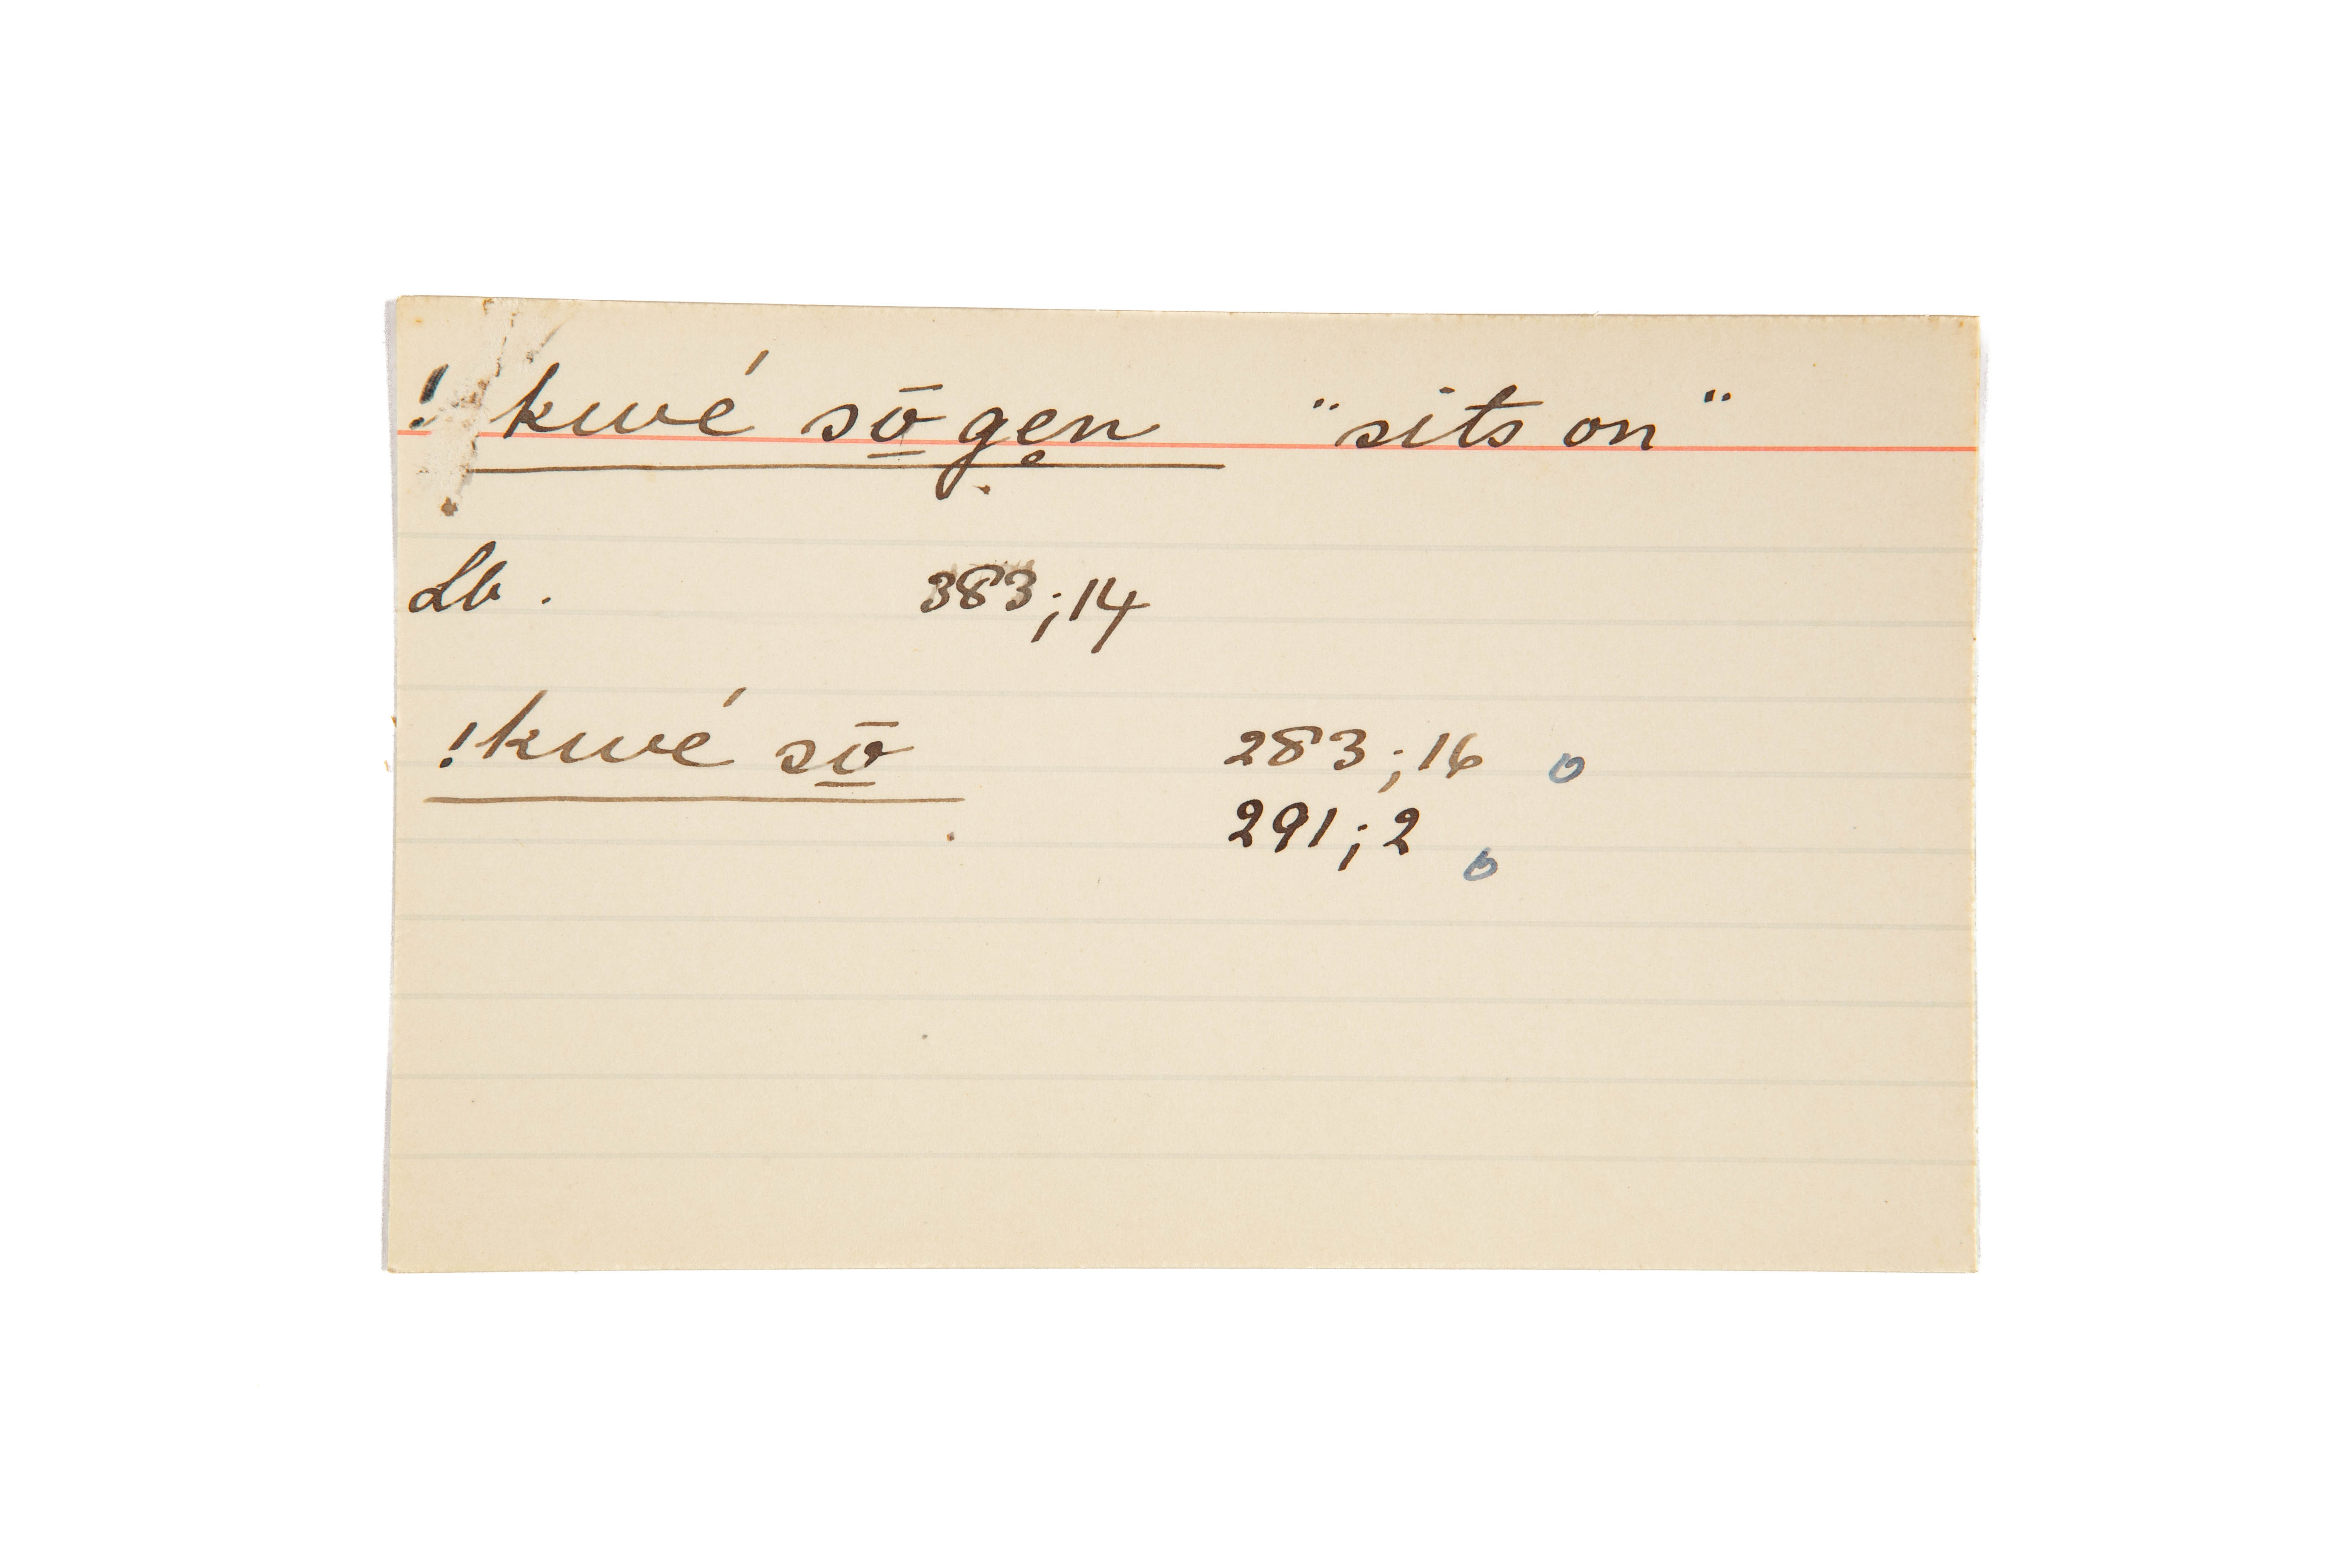 !kwé sō̱gen̥ "sits on"
Lb. 383;14
!kwé sō̱ 283;16 o
291;2 o